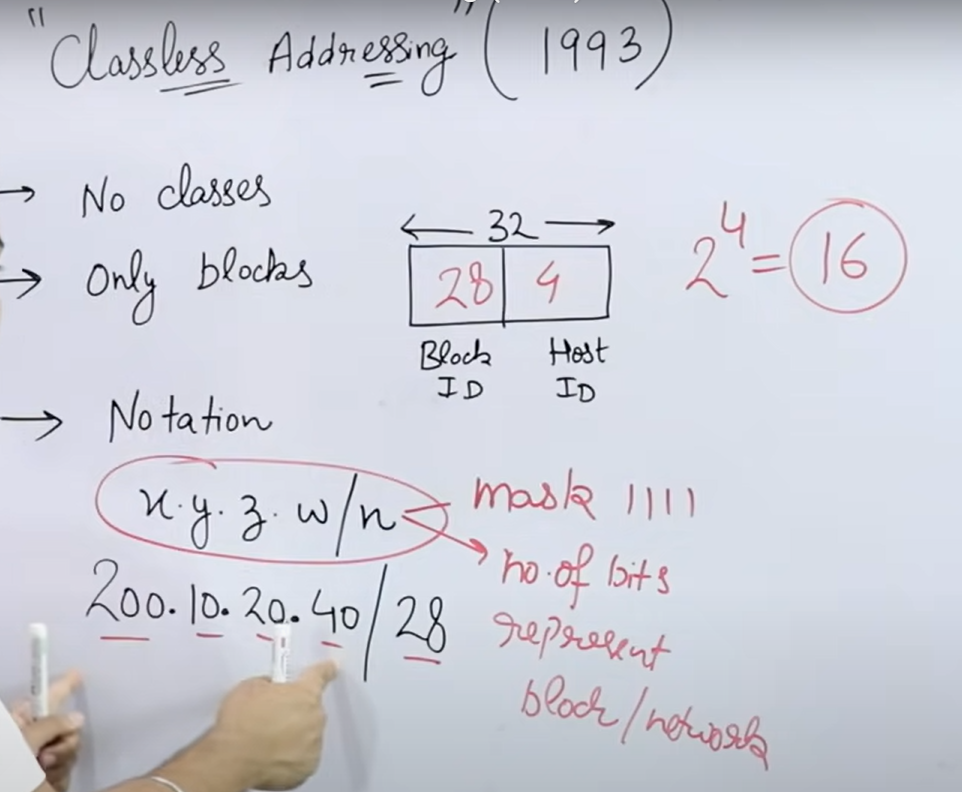 "Classless Addressing" (1993)
→ No classes
→ Only blocks
← 32 →
28 4
Block ID
Host ID
2^4 = 16
→ Notation
x.y.z.w/n
mask 1111
no. of bits
represent
block/network
200.10.20.40/28